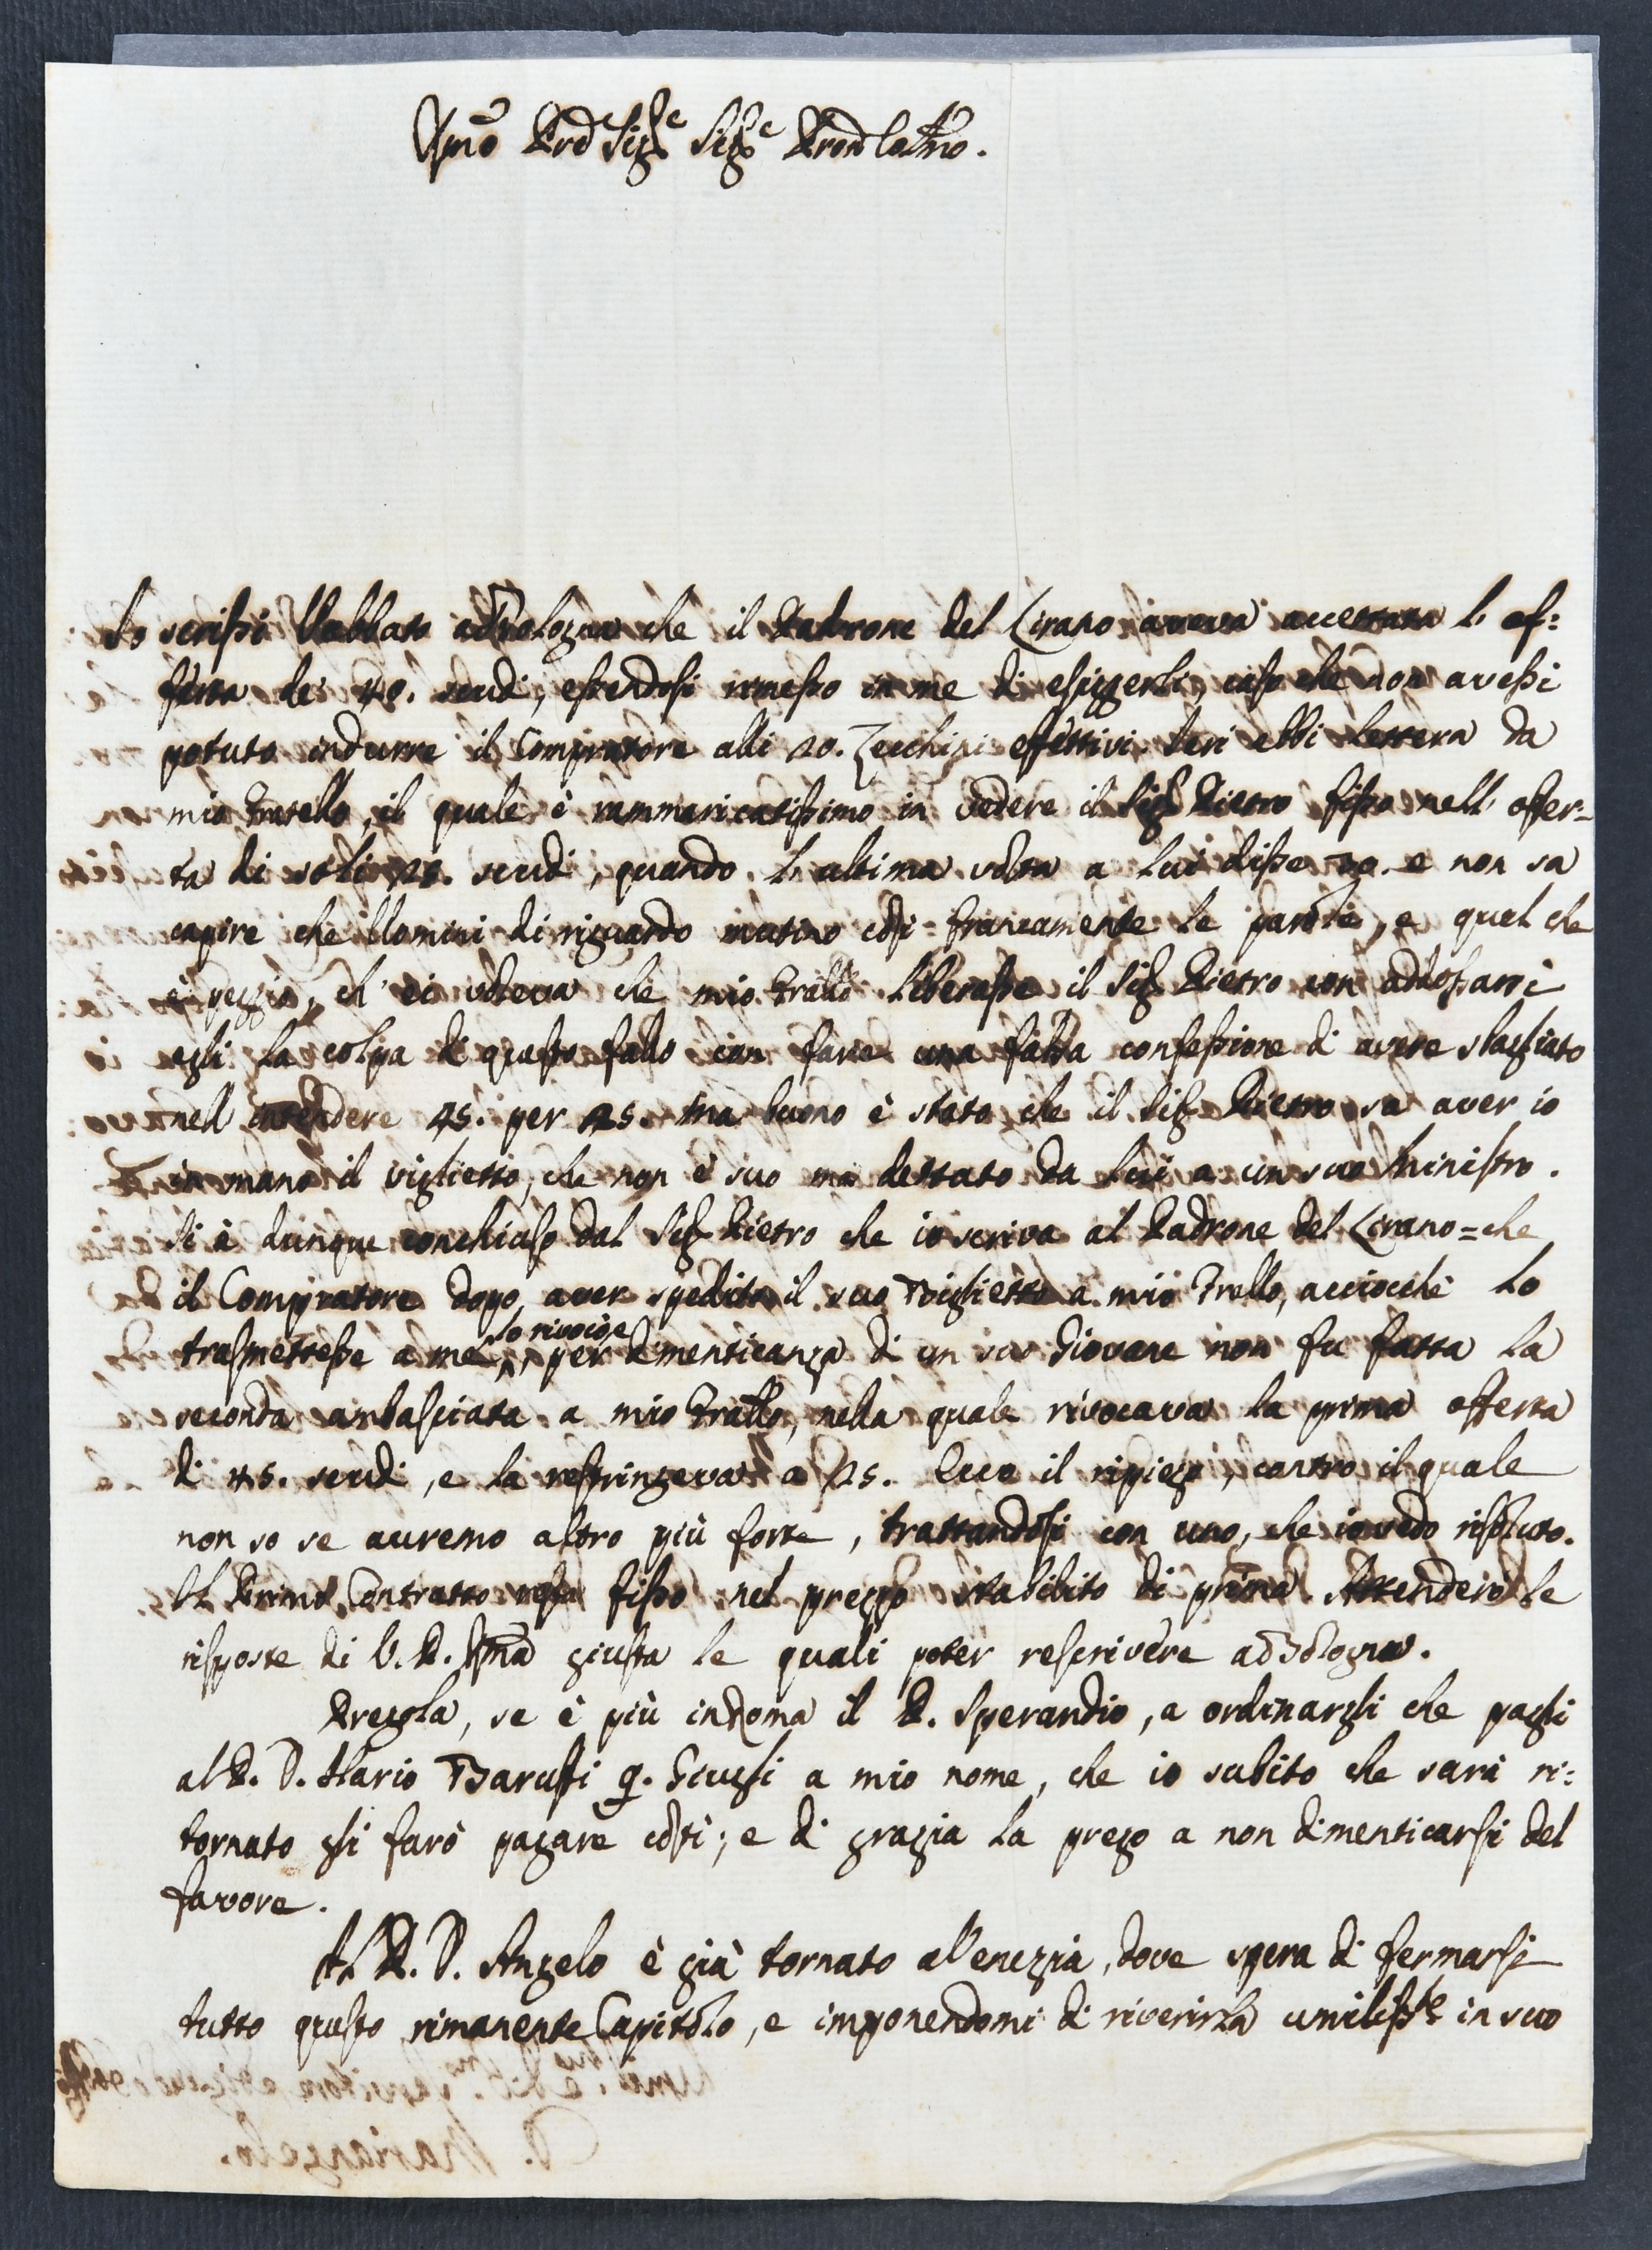 Illmo Prōn Sigr Sigr Pron Colmo.
Io scrissi Sabbato a Bologna che il Padrone del Cirano aveva accettata l' of=
ferta de' 45. scudi, essendosi rimesso in me di esiggerli, caso che non avessi
potuto indurre il Compratore alli 20. Zecchini effettivi. Ieri ebbi lettera da
mio Fratello, il quale è rammaricatissimo in vedere il Sigr Pietro fisso nell' offer=
ta di soli 25. scudi, quando l' ultima volta a lui disse e non sa
capire che Uomini di riguardo mutino così francamente le parole, e quel che
è peggio, ch' ei voleva che mio Frello liberasse il Sigr Pietro con addossarsi
egli la colpa di questo fallo con fare una falsa confessione di avere sbagliato
nell' intendere 45. per 25. ma buono è stato che il Sigr Pietro sa aver io
in mano il viglietto, che non è suo ma dettato da lui a un suo Ministro.
Si è dunque conchiuso dal Sigr Pietro che io scriva al Padrone del Cirano = che
il Compratore dopo aver spedito il suo Biglietto a mio Frello, acciocchè lo
trasmettesse a me, lo rivocò e per dimenticanza di un suo Giovane non fu fatta la
seconda ambasciata a mio Fratello, nella quale rivocava la prima offerta
di 45. scudi, e la restringeva a 25. Ecco il ripiego, contro il quale
non so se avremo altro più forte, trattandosi con uno, che io vedo risoluto.
Il Primo Contratto resta fisso nel prezzo stabilito di prima. Attenderò le
risposte di V. P. Illma giusta le quali poter rescrivere a Bologna.
Pregola, se è più in Roma il P. Sperandio, a ordinargli che paghi
al P. D. Ilario Baruffi q. Giugli a mio nome, che io subito che sarà ri=
tornato gli farò pagare costì; e di grazia la prego a non dimenticarsi del
favore.
Il P. D. Angelo è già tornato a Venezia, dove spera di fermarsi
tutto questo rimanente Capitolo, e imponendomi di riverirla umilisste in suo